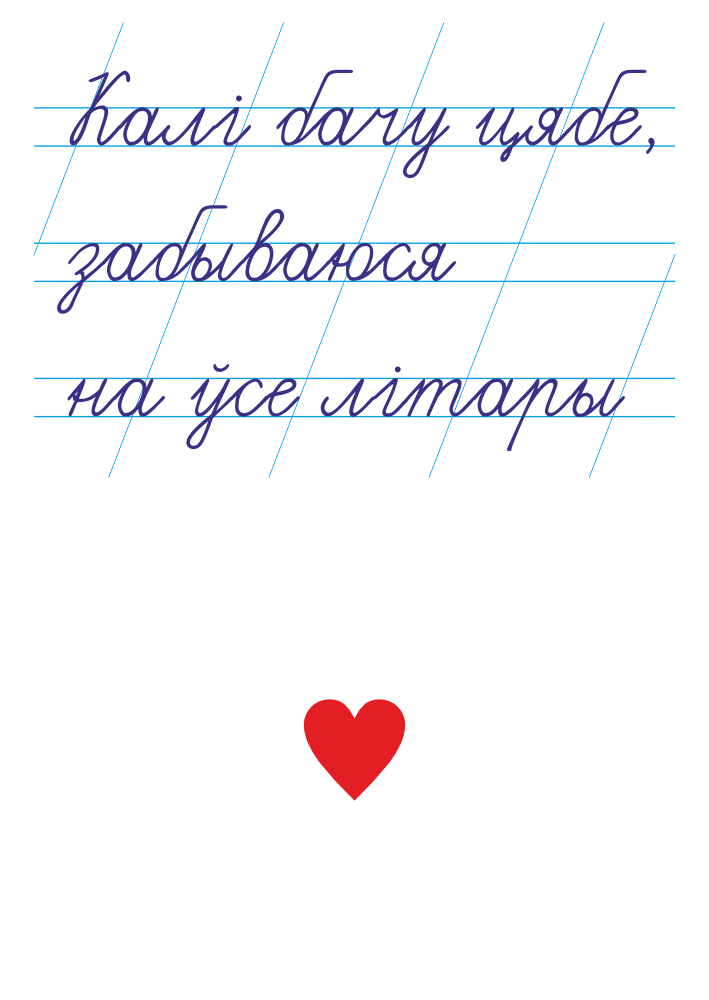 Калі бачу цябе,
забываюся
на ўсе літары